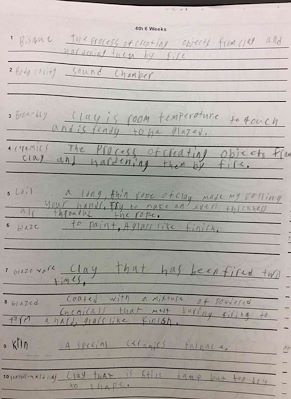 4th 6 Weeks
1 Bisque The process of creating objects from clay and
hardening them by fire
2 Body cavity sound chamber
3 Bone dry Clay is room temperature to touch
and is ready to be glazed.
4 ceramics The Process of creating objects from
clay and hardening them by fire.
5 Coil a long, thin rope of clay made by rolling
your hands. Try to make an even thickness
all through the rope.
6 Glaze to paint, A glass like finish.
7 glaze ware Clay that has been fired two
times.
8 Glazed coated with a mixture of powdered
chemicals that melt during firing to
form a hard, glass like finish.
9 Kiln a special ceramics furnace.
10 Clay that is still damp but too dry
to shape.